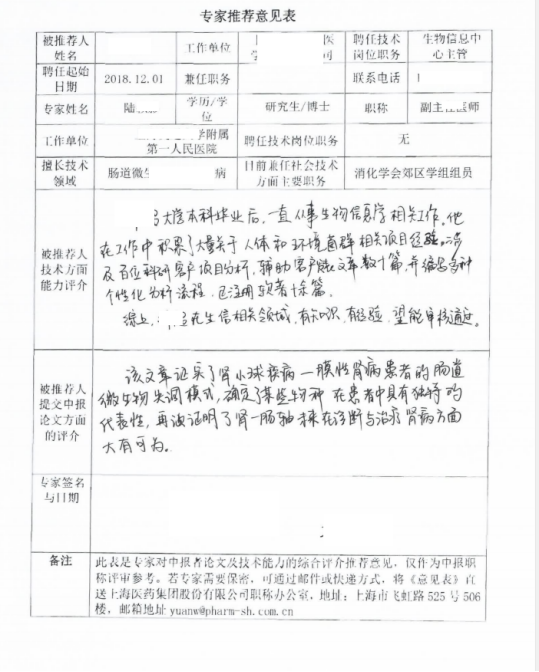 专家推荐意见表
被推荐人姓名 工作单位 医 司 聘任技术岗位职务 生物信息中心主管
聘任起始日期 2018.12.01 兼任职务 联系电话
专家姓名 陆 学历/学位 研究生/博士 职称 副主 师
工作单位 学附属第一人民医院 聘任技术岗位职务 无
擅长技术领域 肠道微 病 目前兼任社会技术方面主要职务 消化学会郊区学组组员
被推荐人技术方面能力评介
大学本科毕业后,一直从事生物信息学相关工作。他
在工作中积累了大量关于人体和环境菌群相关项目经验。涉
及百位科研客户项目分析,辅助客户发表文章数十篇,并编写多种
个性化分析流程,已注册软著十余篇。
综上, 在生信相关领域,有知识,有经验,望能审核通过。
被推荐人提交申报论文方面的评介
该文章证实了肾小球疾病—膜性肾病患者的肠道
微生物失调模式,确定了某些物种在患者中具有独特的
代表性,再次证明了肾—肠轴未来在诊断与治疗肾病方面
大有可为。
专家签名与日期
备注
此表是专家对申报者论文及技术能力的综合评介推荐意见,仅作为申报职
称评审参考。若专家需要保密,可通过邮件或快递方式,将《意见表》直
送上海医药集团股份有限公司职称办公室,地址:上海市飞虹路 525 号 506
楼,邮箱地址 yuanw@pharm-sh.com.cn